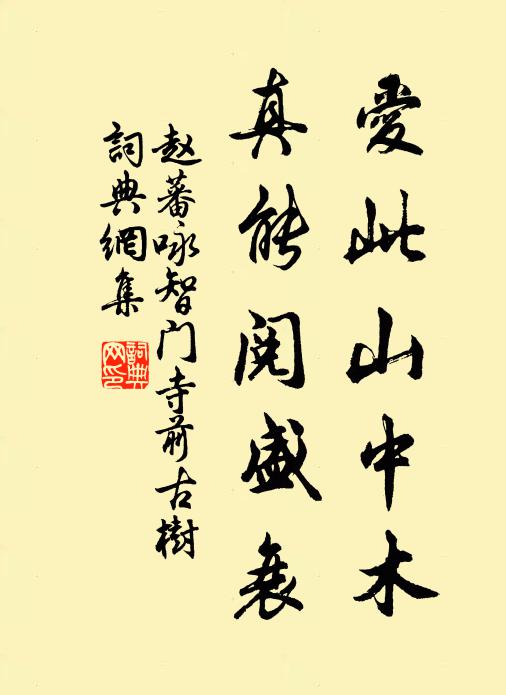 愛此山中木
真能閱盛衰
赵蕃咏智门寺前古樹
詞典網集
詞典
网印